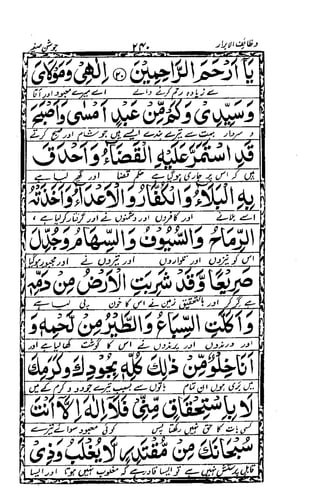 وظائف الابرار ۲۴۰ جوشن صغیر
يَا أَرْحَمَ الرَّاحِمِيْنَ (۲۰) اِلٰهِيْ وَمَوْلَايَ
سے زیادہ رحم کرنے والے اے میرے معبود اور آقا
وَسَيِّدِيْ وَكَمْ مِّنْ عَبْدٍ اَمْسٰى وَاَصْبَحَ
و سردار بہت سے تیرے بندے ایسے ہیں جو شام اور صبح کرتے
قَدِ اسْتَمَرَّ عَلَيْهِ الْقَضَاءُ وَاَحْدَقَ
ہیں کہ اس پر جاری ہو گیا ہے حکم قضا اور گھیر لیا ہے
بِهِ الْبَلَاءُ وَالْكُفَّارُ وَالْاَعْدَاءُ وَاَخَذَتْهُ
اسے بلانے اور کافروں اور دشمنوں نے اور گرفتار کر لیا ہے
الرِّمَاحُ وَالسُّيُوْفُ وَالسِّهَامُ وَجُدِّلَ
اس کو نیزوں اور تلواروں اور تیروں نے اور
صَرِيْعًا وَّقَدْ شَرِبَتِ الْاَرْضُ مِنْ دَمِهٖ
ہے گر کر اور بالتحقیق زمین نے اس کا خون پی لیا ہے
وَاَكَلَتِ السِّبَاعُ وَالطَّيْرُ مِنْ لَحْمِهٖ وَ
اور درندوں اور پرندوں نے اس کا گوشت کھا لیا ہے اور
اَنَا خِلْوٌ مِّنْ ذٰلِكَ كُلِّهٖ بِجُوْدِكَ وَكَرَمِكَ
میں بری ہوں ان تمام باتوں سے بسبب تیرے جود و کرم کے میں
لَا بِاسْتِحْقَاقٍ مِّنِّيْ فَلَا اِلٰهَ اِلَّا اَنْتَ
کسی بات کا حق نہیں رکھتا پس کوئی معبود سوا تیرے
سُبْحَانَكَ مِنْ مُّقْتَدِرٍ لَا يُغْلَبُ وَذِيْ
قابل پرستش نہیں ہے تو ایسا قادر ہے کہ مغلوب نہیں ہوتا اور ایسا